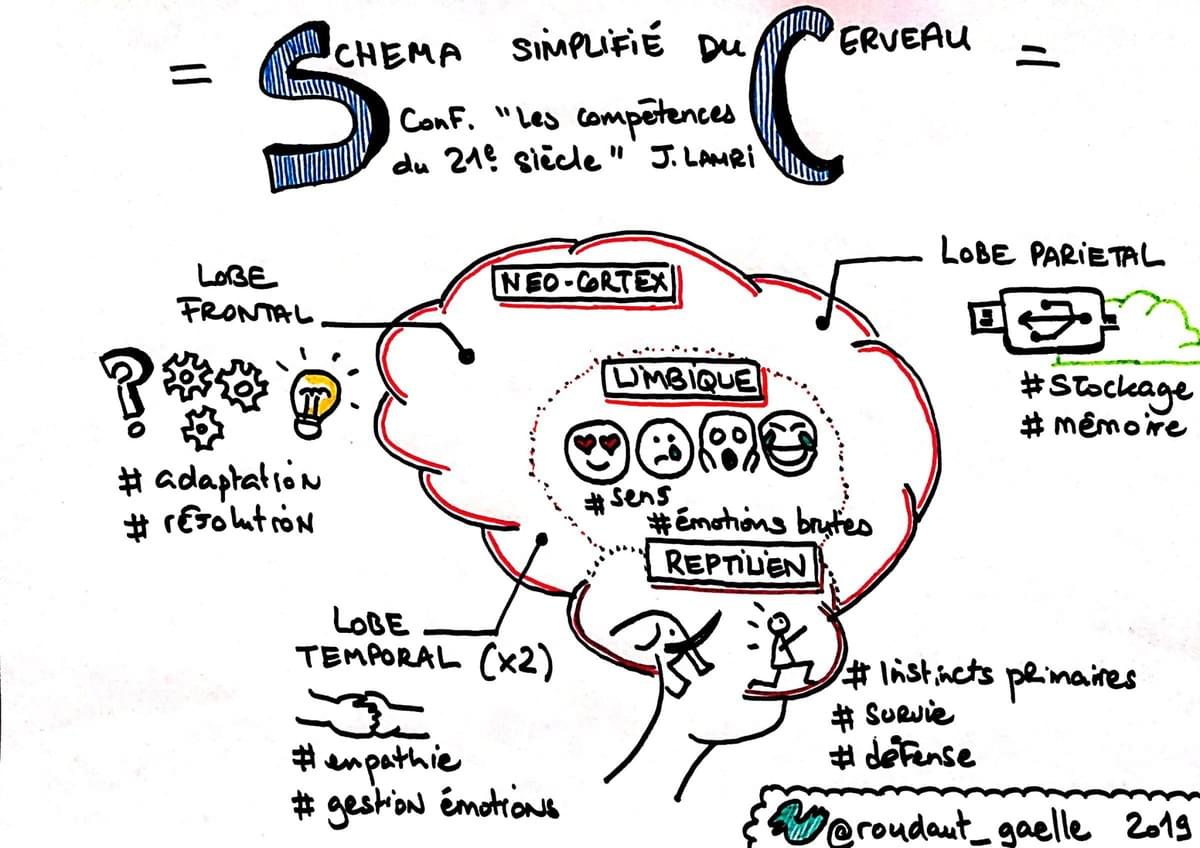 = SCHEMA SIMPLIFIÉ DU CERVEAU =
CONF. "Les compétences
du 21e siècle" J. LAMRI
NEO-CORTEX
LOBE PARIETAL
LOBE
FRONTAL
LIMBIQUE
?
#stockage
# mémoire
# adaptation
# résolution
#sens
#émotions brutes
REPTILIEN
LOBE
TEMPORAL (x2)
# Instincts primaires
# Survie
# défense
# empathie
# gestion émotions
@roudaut_gaelle 2019